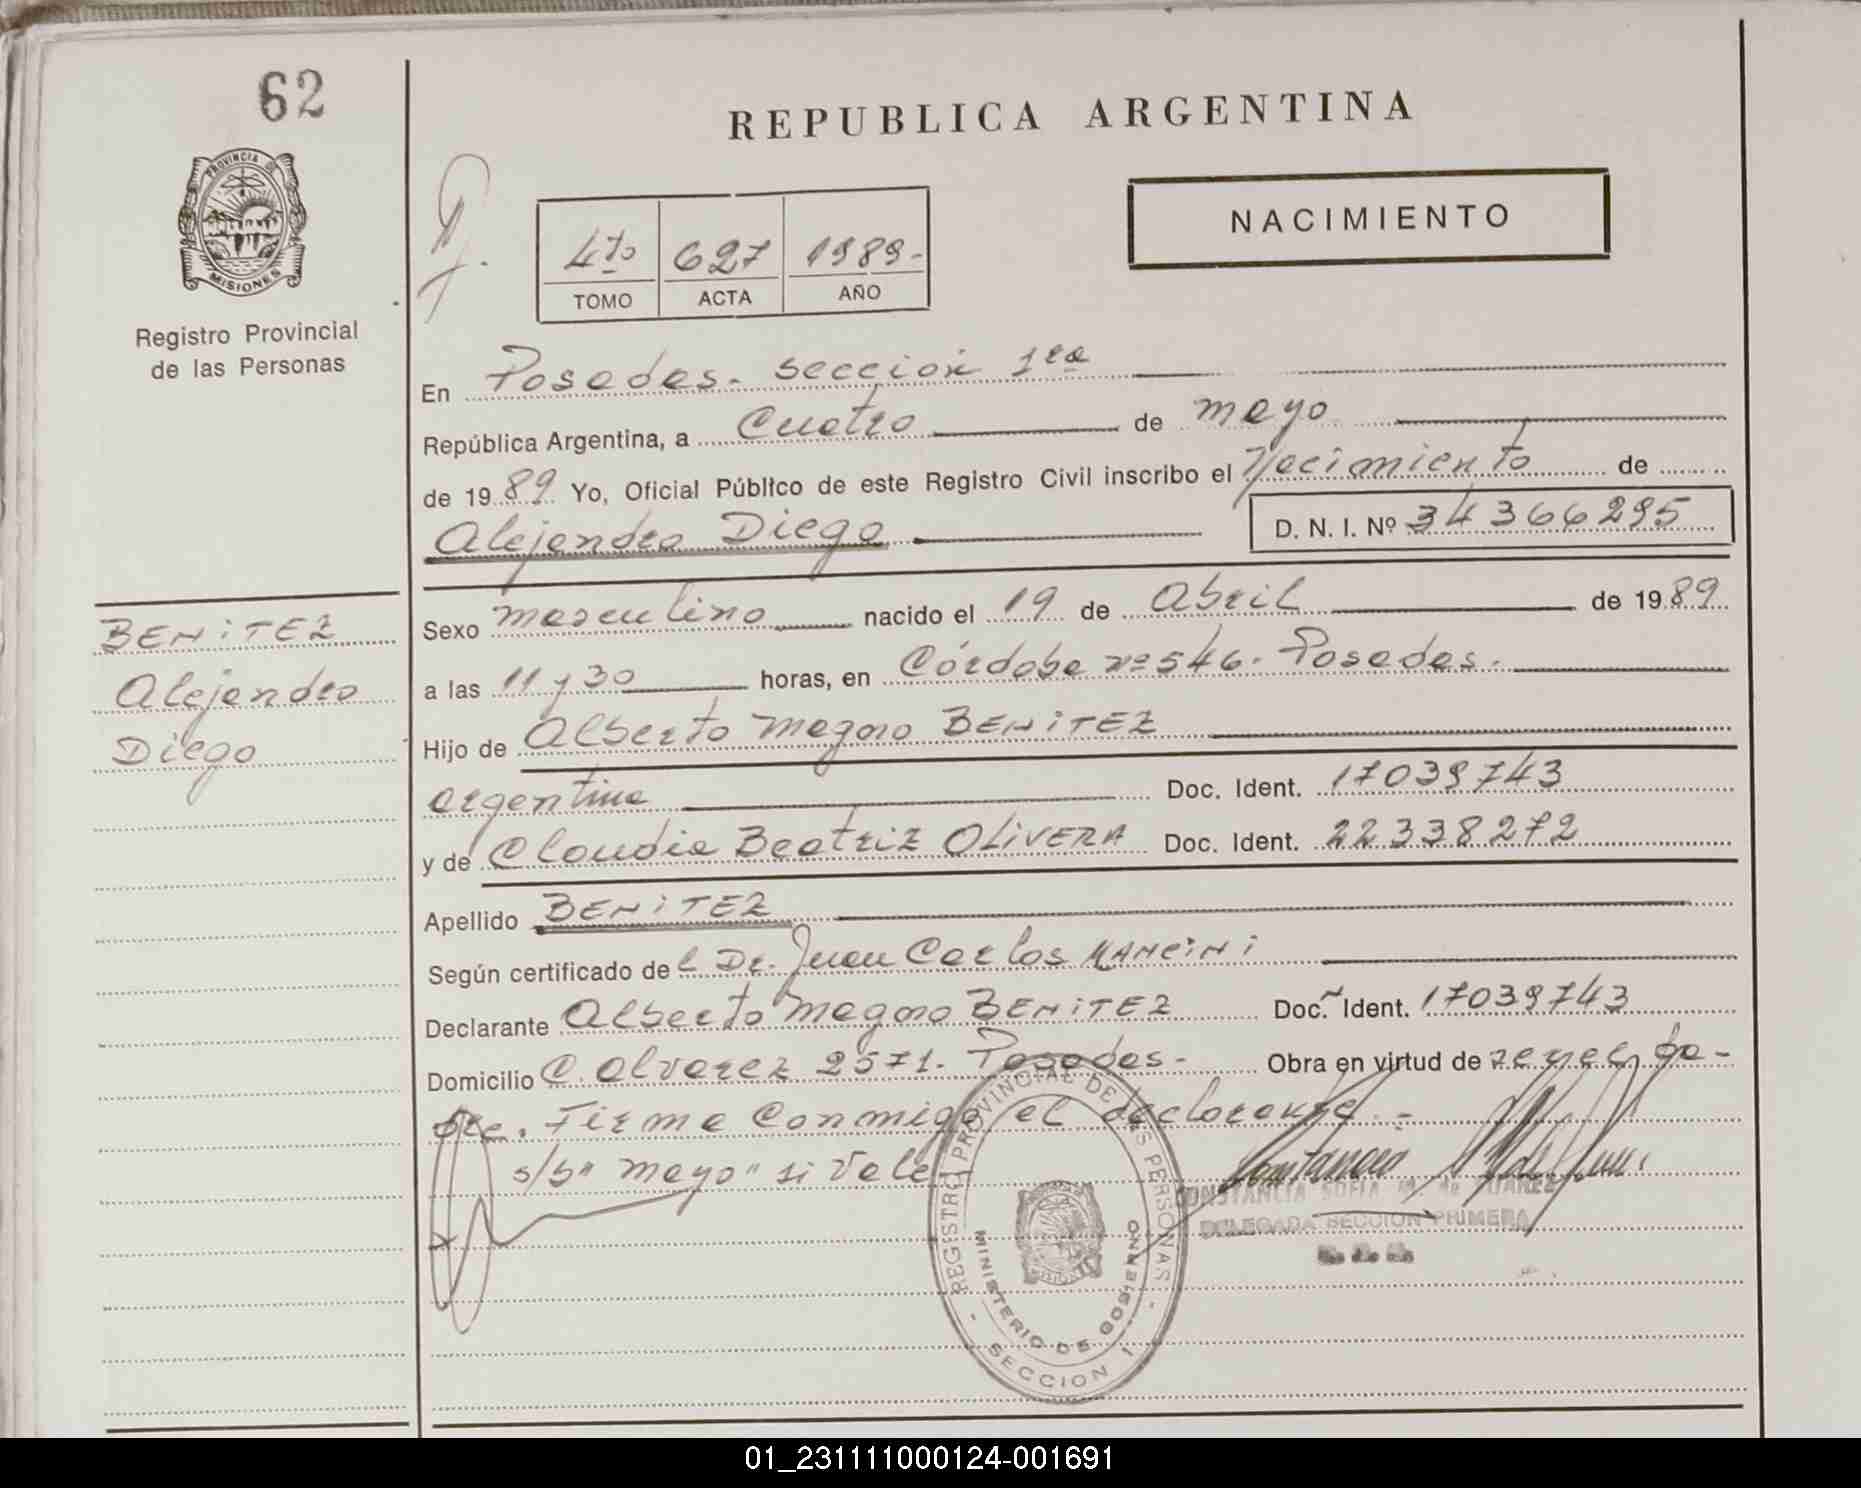 62
PROVINCIA DE
MISIONES
Registro Provincial
de las Personas
BENITEZ
Alejandro
Diego
REPUBLICA ARGENTINA
NACIMIENTO
4to 627 1989.-
TOMO ACTA AÑO
En Posadas. sección 1ra
República Argentina, a Cuatro de mayo
de 1989 Yo, Oficial Público de este Registro Civil inscribo el Nacimiento de
Alejandro Diego D. N. I. Nº 34366295
Sexo masculino nacido el 19 de Abril de 1989
a las 11 y 30 horas, en Córdoba nº 546. Posadas.
Hijo de Alberto Magno BENITEZ
argentina Doc. Ident. 17039743
y de Claudia Beatriz OLIVERA Doc. Ident. 22338272
Apellido BENITEZ
Según certificado del Dr. Juan Carlos MANCINI
Declarante Alberto Magno BENITEZ Doc. Ident. 17039743
Domicilio C. Alvarez 2571. Posadas- Obra en virtud de ser el pa-
dre. Firma conmigo el declarante.-
s/b" mayo" si Vale
REGISTRO PROVINCIAL DE LAS PERSONAS
MINISTERIO DE GOBIERNO
- SECCION 1 -
CONSTANCIA SOFIA M. de JUAREZ
DELEGADA SECCION PRIMERA
01_231111000124-001691